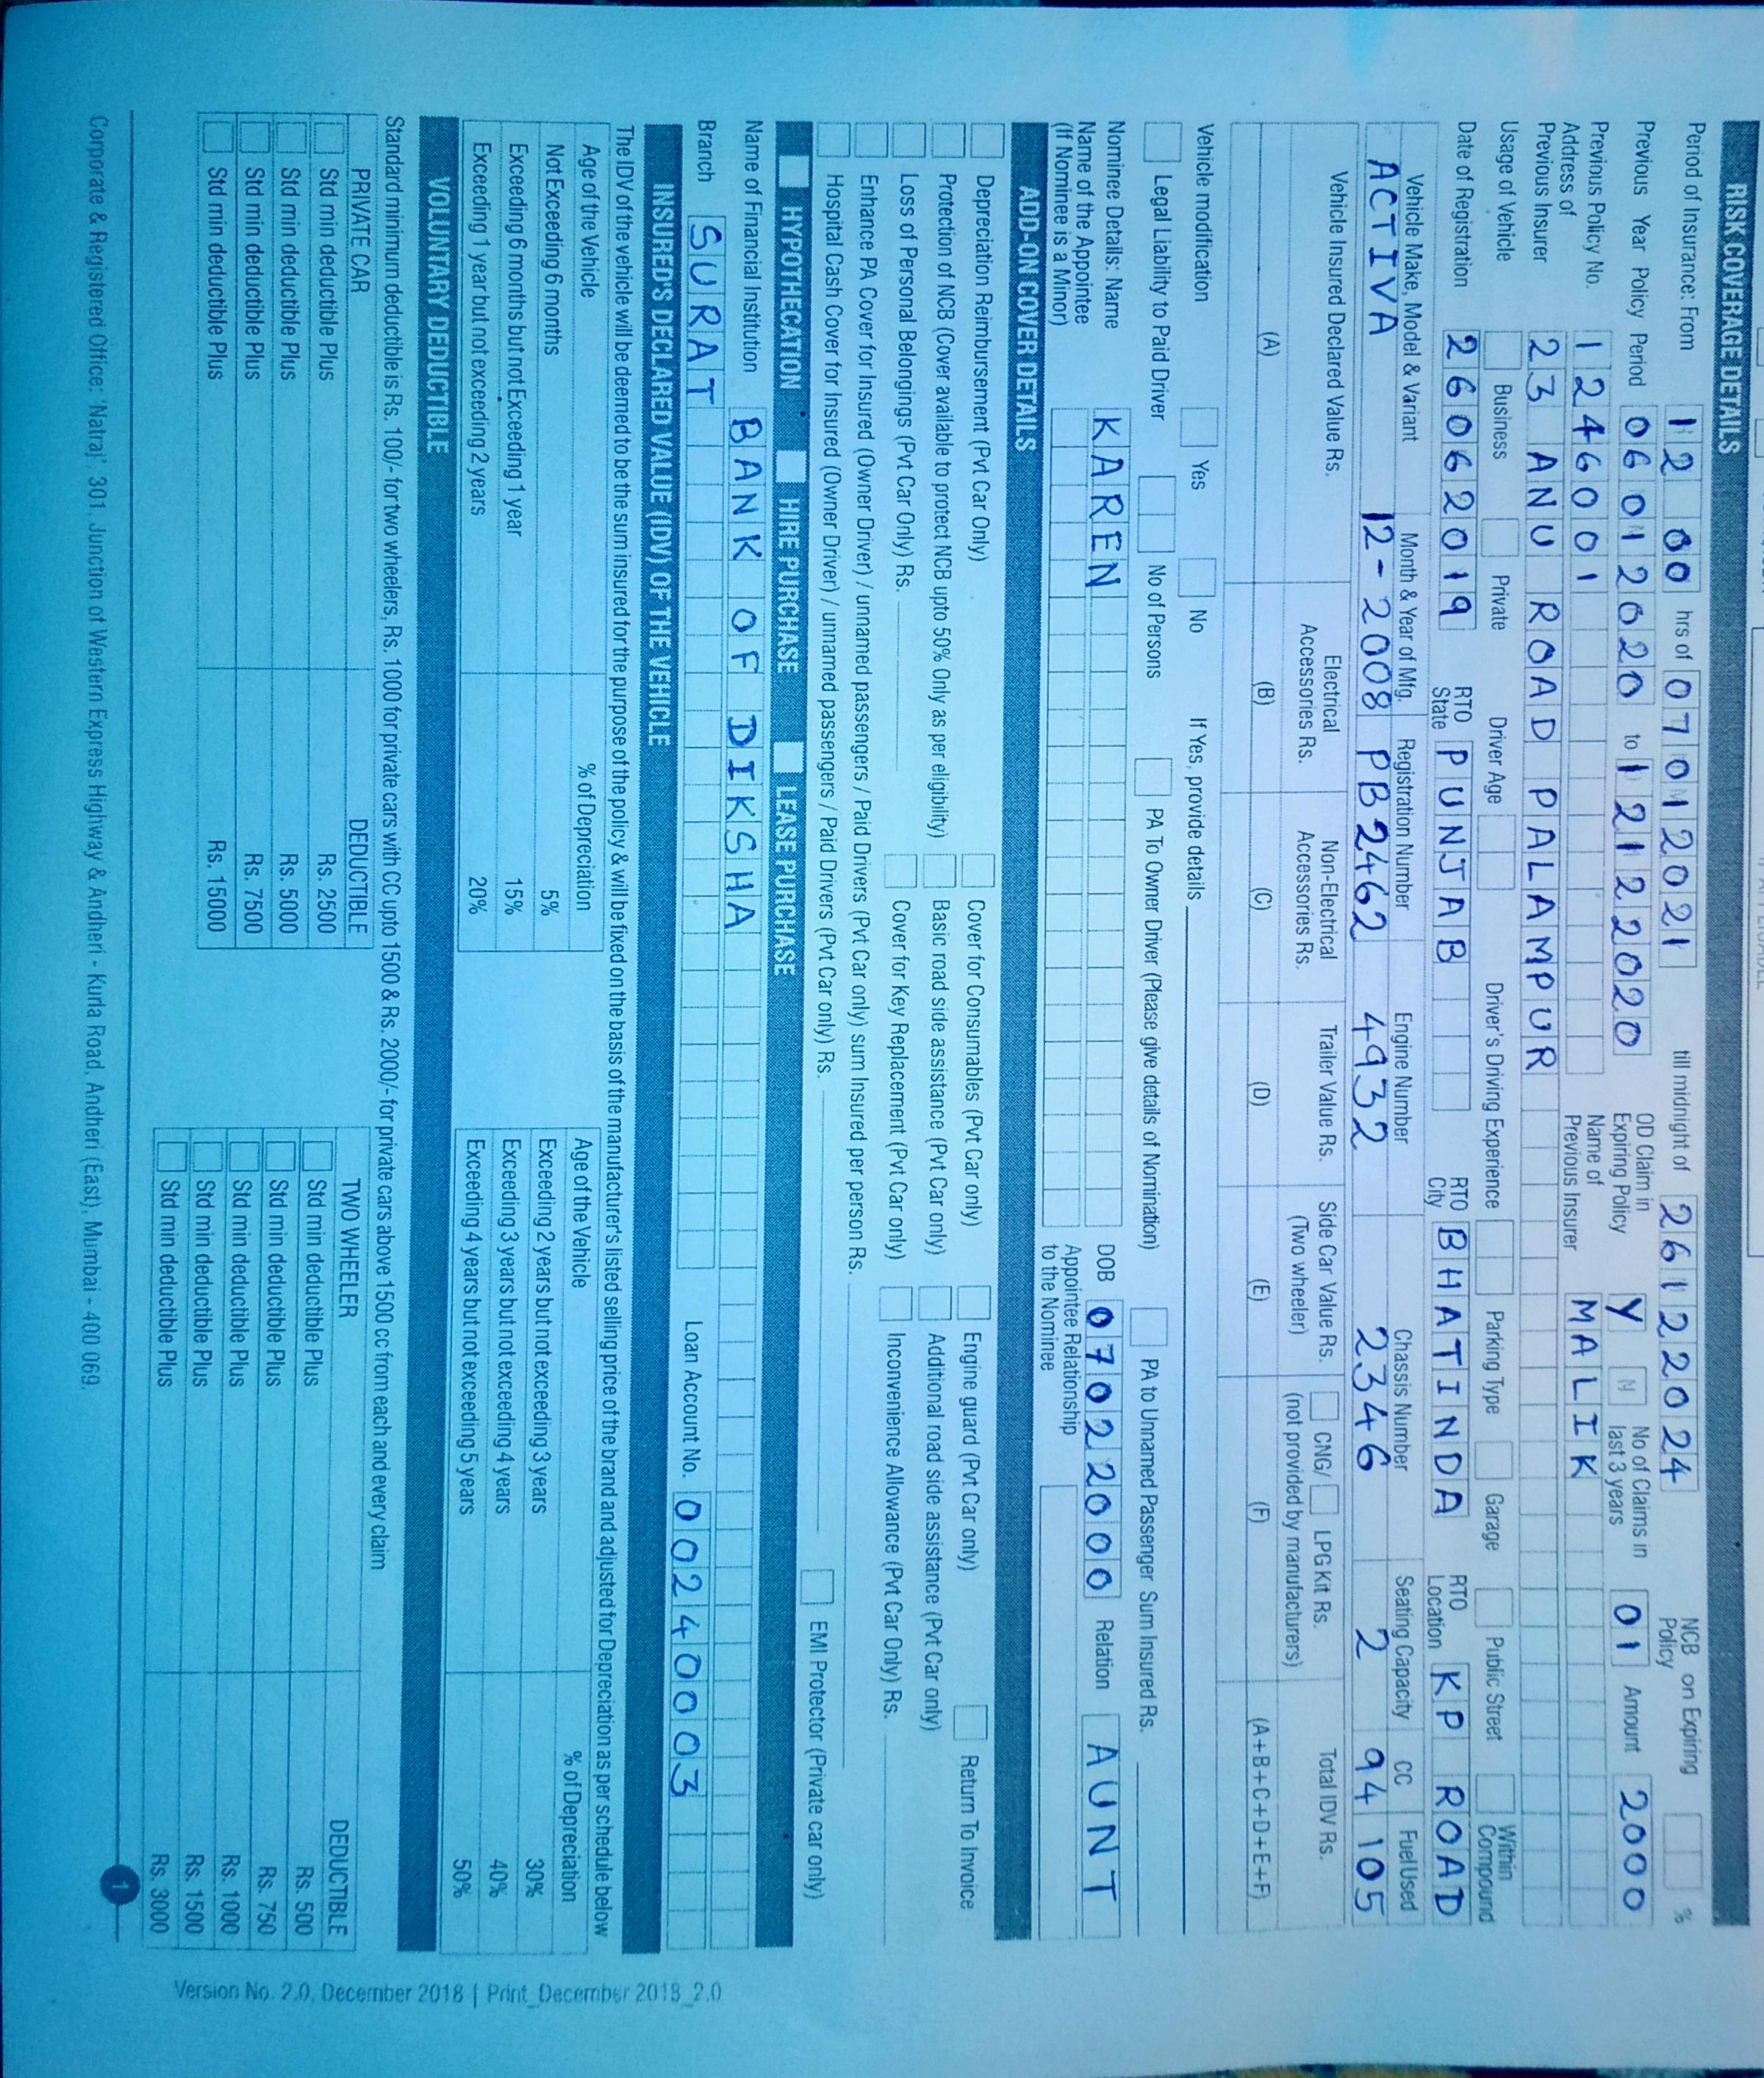 RISK COVERAGE DETAILS
Period of Insurance: From 12 00 hrs of 07012021 till midnight of 26122024 NCB on Expiring Policy %
Previous Year Policy Period 06012020 to 12122020 OD Claim in Expiring Policy Y N No of Claims in last 3 years 01 Amount 2000
Previous Policy No. 1246001 Name of Previous Insurer MALIK
Address of Previous Insurer 23 ANU ROAD PALAMPUR
Usage of Vehicle Business Private Driver Age Driver's Driving Experience Parking Type Garage Public Street Within Compound
Date of Registration 26062019 RTO State PUNJAB RTO City BHATINDA RTO Location KP ROAD
Vehicle Make, Model & Variant Month & Year of Mfg. Registration Number Engine Number Chassis Number Seating Capacity CC Fuel Used
ACTIVA 12-2008 PB2462 4932 2346 2 94 105
Vehicle Insured Declared Value Rs. Electrical Accessories Rs. Non-Electrical Accessories Rs. Trailer Value Rs. Side Car Value Rs. (Two wheeler) CNG/ LPG Kit Rs. (not provided by manufacturers) Total IDV Rs.
(A) (B) (C) (D) (E) (F) (A+B+C+D+E+F)
Vehicle modification Yes No If Yes, provide details
Legal Liability to Paid Driver No of Persons PA To Owner Driver (Please give details of Nomination) PA to Unnamed Passenger Sum Insured Rs.
Nominee Details: Name KAREN DOB 07022000 Relation AUNT
Name of the Appointee (If Nominee is a Minor) Appointee Relationship to the Nominee
ADD-ON COVER DETAILS
Depreciation Reimbursement (Pvt Car Only) Cover for Consumables (Pvt Car only) Engine guard (Pvt Car only) Return To Invoice
Protection of NCB (Cover available to protect NCB upto 50% Only as per eligibility) Basic road side assistance (Pvt Car only) Additional road side assistance (Pvt Car only)
Loss of Personal Belongings (Pvt Car Only) Rs. Cover for Key Replacement (Pvt Car only) Inconvenience Allowance (Pvt Car Only) Rs.
Enhance PA Cover for Insured (Owner Driver) / unnamed passengers / Paid Drivers (Pvt Car only) sum Insured per person Rs.
Hospital Cash Cover for Insured (Owner Driver) / unnamed passengers / Paid Drivers (Pvt Car only) Rs. EMI Protector (Private car only)
HYPOTHECATION HIRE PURCHASE LEASE PURCHASE
Name of Financial Institution BANK OF DIKSHA
Branch SURAT Loan Account No. 00240003
INSURED'S DECLARED VALUE (IDV) OF THE VEHICLE
The IDV of the vehicle will be deemed to be the sum insured for the purpose of the policy & will be fixed on the basis of the manufacturer's listed selling price of the brand and adjusted for Depreciation as per schedule below
Age of the Vehicle % of Depreciation Age of the Vehicle % of Depreciation
Not Exceeding 6 months 5% Exceeding 2 years but not exceeding 3 years 30%
Exceeding 6 months but not Exceeding 1 year 15% Exceeding 3 years but not exceeding 4 years 40%
Exceeding 1 year but not exceeding 2 years 20% Exceeding 4 years but not exceeding 5 years 50%
VOLUNTARY DEDUCTIBLE
Standard minimum deductible is Rs. 100/- for two wheelers, Rs. 1000 for private cars with CC upto 1500 & Rs. 2000/- for private cars above 1500 cc from each and every claim
PRIVATE CAR DEDUCTIBLE TWO WHEELER DEDUCTIBLE
Std min deductible Plus Rs. 2500 Std min deductible Plus Rs. 500
Std min deductible Plus Rs. 5000 Std min deductible Plus Rs. 750
Std min deductible Plus Rs. 7500 Std min deductible Plus Rs. 1000
Std min deductible Plus Rs. 15000 Std min deductible Plus Rs. 1500
Std min deductible Plus Rs. 3000
1
Corporate & Registered Office: 'Natraj', 301, Junction of Western Express Highway & Andheri - Kurla Road, Andheri (East), Mumbai - 400 069.
Version No. 2.0, December 2018 | Print_December 2018_2.0